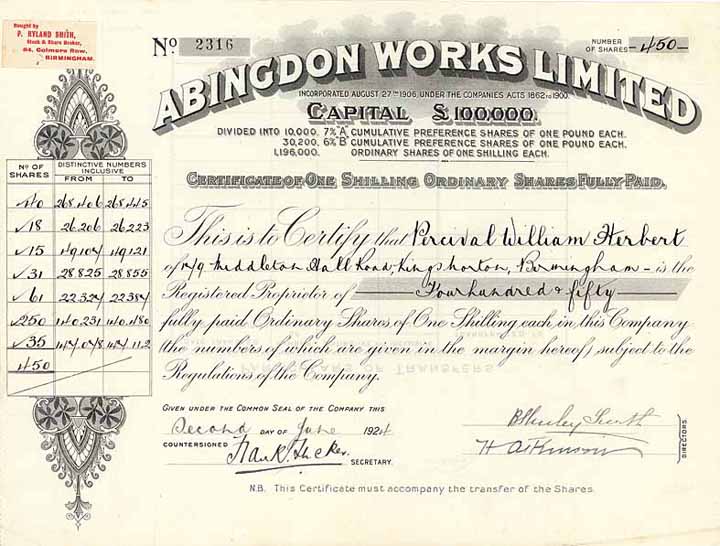 Bought by
P. RYLAND SMITH,
Stock & Share Broker,
84, Colmore Row,
BIRMINGHAM.
No 2316
NUMBER OF SHARES -450-
ABINGDON WORKS LIMITED
INCORPORATED AUGUST 27TH 1906, UNDER THE COMPANIES ACTS 1862 TO 1900.
CAPITAL £100,000.
DIVIDED INTO 10,000. 7% "A" CUMULATIVE PREFERENCE SHARES OF ONE POUND EACH.
30,200, 6% "B" CUMULATIVE PREFERENCE SHARES OF ONE POUND EACH.
1,196,000. ORDINARY SHARES OF ONE SHILLING EACH.
CERTIFICATE OF ONE SHILLING ORDINARY SHARES FULLY-PAID.
No OF SHARES DISTINCTIVE NUMBERS INCLUSIVE
FROM TO
40 268.406 268.445
18 26.206 26.223
15 49,104 49,121
31 28.825 28.855
61 22324 22384
250 140.231 140.480
35 144.078 144.112
450
This is to Certify that Percival William Herbert
of 149 Middleton Hall Road, Kings Norton, Birmingham - is the
Registered Proprietor of Fourhundred & fifty
fully paid Ordinary Shares of One Shilling each, in this Company
(the numbers of which are given in the margin hereof) subject to the
Regulations of the Company.
GIVEN UNDER THE COMMON SEAL OF THE COMPANY THIS
Second DAY OF June 1924
COUNTERSIGNED
Frank Tucker SECRETARY.
H Atkinson
DIRECTORS.
N.B. This Certificate must accompany the transfer of the Shares.